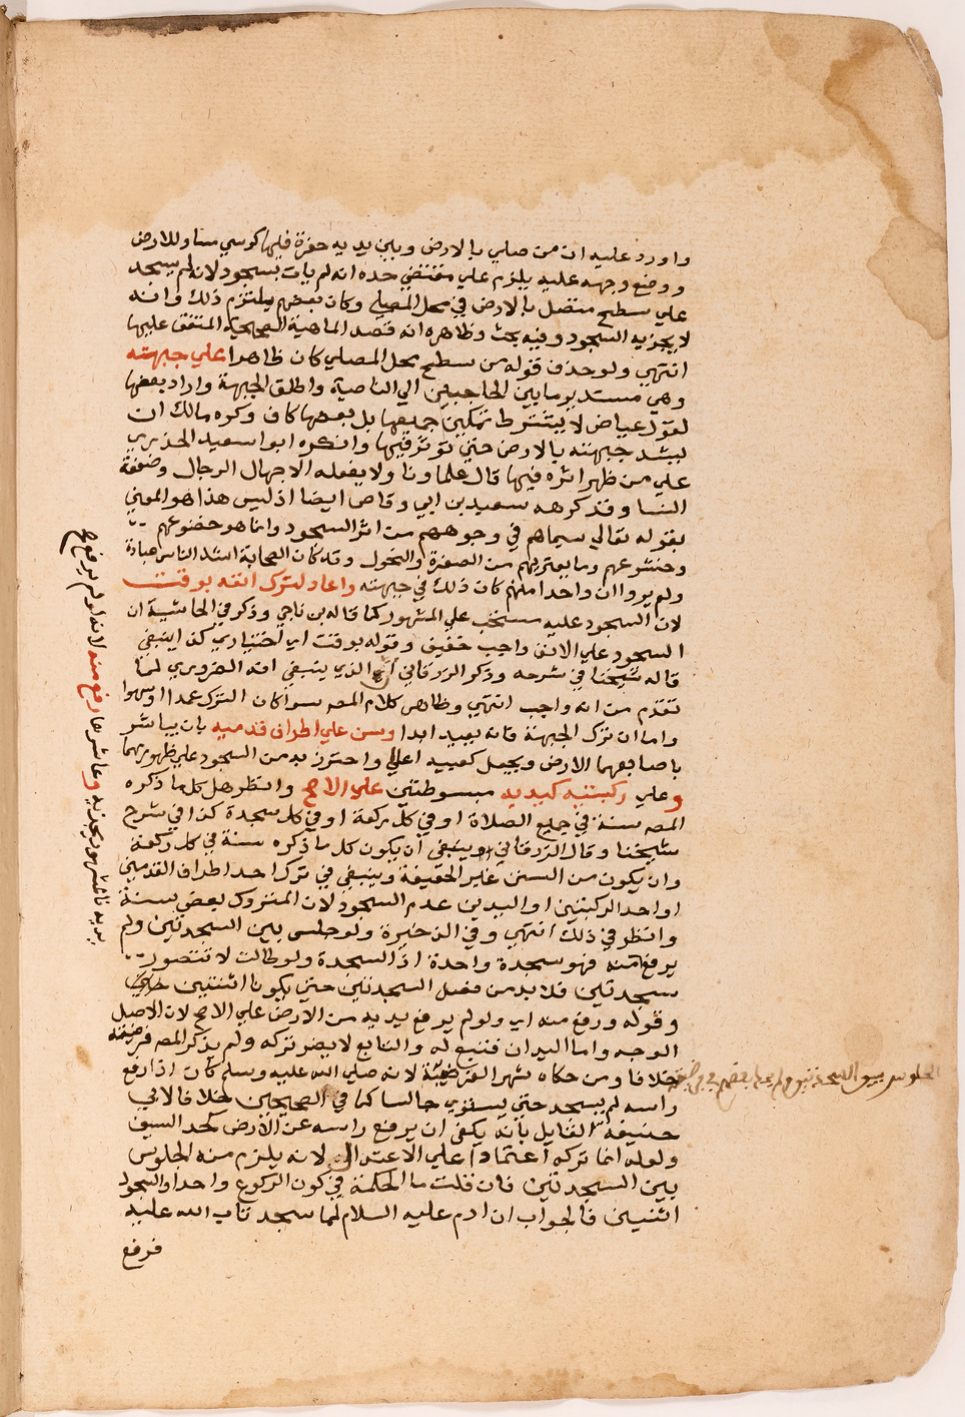 واورد عليه ان من صلي بالارض وبين يديه حفرة فيها كرسي مساو للارض
ووضع وجهه عليه يلزم علي مقتضي حده انه لم يات بسجود لانه لم يسجد
علي سطح متصل بالارض في محل المصلي وكان بعضهم يلتزم ذلك وانه
لا يجزيه السجود وفيه بحث وظاهره انه قصد الماهية الصحيحة المتفق عليها
انتهي ولو حذف قوله من سطح محل المصلي كان ظاهرا علي جبهته
وهي مستدير ما بين الحاجبين الي الناصية واطلق الجبهة واراد بعضها
لقول عياض لا يشترط تمكين جميعها بل بعضها كاف وكره مالك ان
يشد جبهته بالارض حتي تؤثر فيها وانكره ابو اسعيد الخدري
علي من ظهر اثره فيها قال علماونا ولا يفعله الا جهال الرجال وضعفة
النسا وقد كرهه سعيد بن ابي وقاص ايضا اذ ليس هذا هو المعني
بقوله تعالي سيماهم في وجوههم من اثر السجود وانما هو خضوعهم
وخشوعهم وما يعتريهم من الصفرة والنحول وقد كان الصحابة اشد الناس عبادة
ولم يروا ان واحدا منهم كان ذلك في جبهته واعاد لترك انفه بوقت
لان السجود عليه مستحب علي المشهور كما قاله بن ناجي وذكر في الحاشية ان
السجود علي الانف واجب خفيف وقوله بوقت اي اختياري كذا ينبغي
قاله شيخنا في شرحه وذكر الزرقاني ان الذي ينبغي انه الضروري لما
تقدم من انه واجب انتهي وظاهر كلام المصـ سوا كان الترك عمدا او سهوا
واما ان ترك الجبهة فانه يعيد ابدا وسن علي اطراف قدميه بان يباشر
باصابعهما الارض ويجعل كعبيه اعلي واحترز به من السجود علي ظهورهما
وعلي ركبتيه كيديه مبسوطتين علي الاصح وانظر هل كل ما ذكره
المصـ سنة في جميع الصلاة او في كل ركعة او في كل سجدة كذا في شرح
شيخنا وقال الزرقاني وينبغي ان يكون كل ما ذكره سنة في كل ركعة
وان يكون من السنن غير الخفيفة وينبغي في ترك احد اطراف القدمين
او احد الركبتين او اليدين عدم السجود لان المتروك بعض سنة
وانظر في ذلك انتهي وفي الذخيرة ولو جلس بين السجدتين ولم
يرفع منه فهو سجدة واحدة اذ السجدة ولو طالت لا تتصور
سجدتين فلا بد من فصل السجدتين حتي يكونا اثنتين
وقوله ورفع منه اي ولو لم يرفع يديه من الارض علي الاصح لان الاصل
الوجه واما اليدان فتبع له والتابع لا يضر تركه ولم يذكر المصـ فرضيته
خلافا ومن حكاه شهر الفرضية لانه صلي الله عليه وسلم كان اذا رفع
راسه لم يسجد حتي يستوي جالسا كما في الصحيحين خلافا لابي
حنيفة القايل بانه يكفي ان يرفع راسه عن الارض كحد السيف
ولعله انما تركه اعتمادا علي الاعتدال لانه يلزم منه الجلوس
بين السجدتين فان قلت ما الحكمة في كون الركوع واحدا والسجود
اثنين فالجواب ان ادم عليه السلام لما سجد تاب الله عليه
فرفع
وعاشرها رفع منه لانه لو لم يرفع